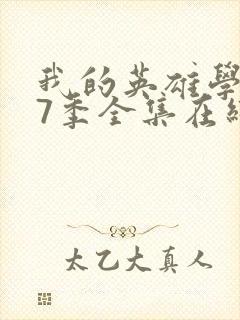 我的英雄學
7季全集在線
太乙大真人